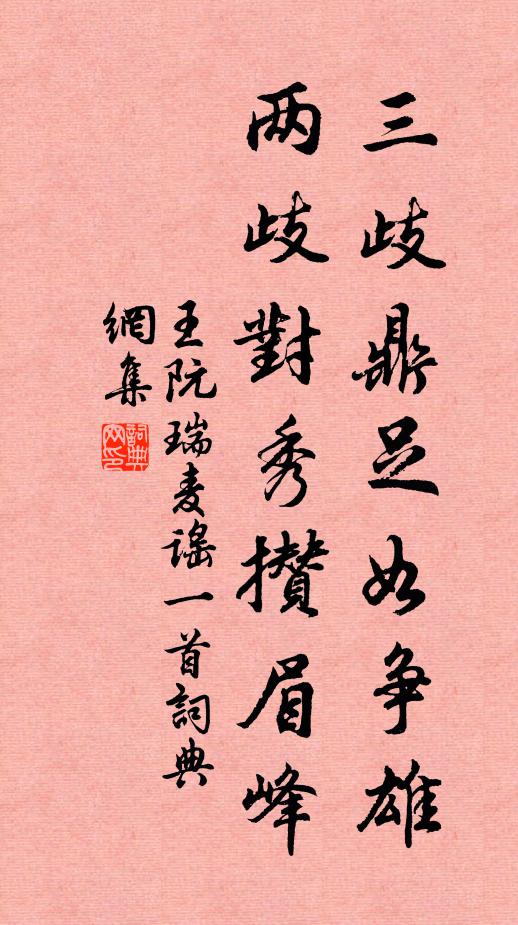 三歧鼎足如争雄
两歧對秀攢眉峰
王阮瑞麦謡一首詞典
網集
詞典网印